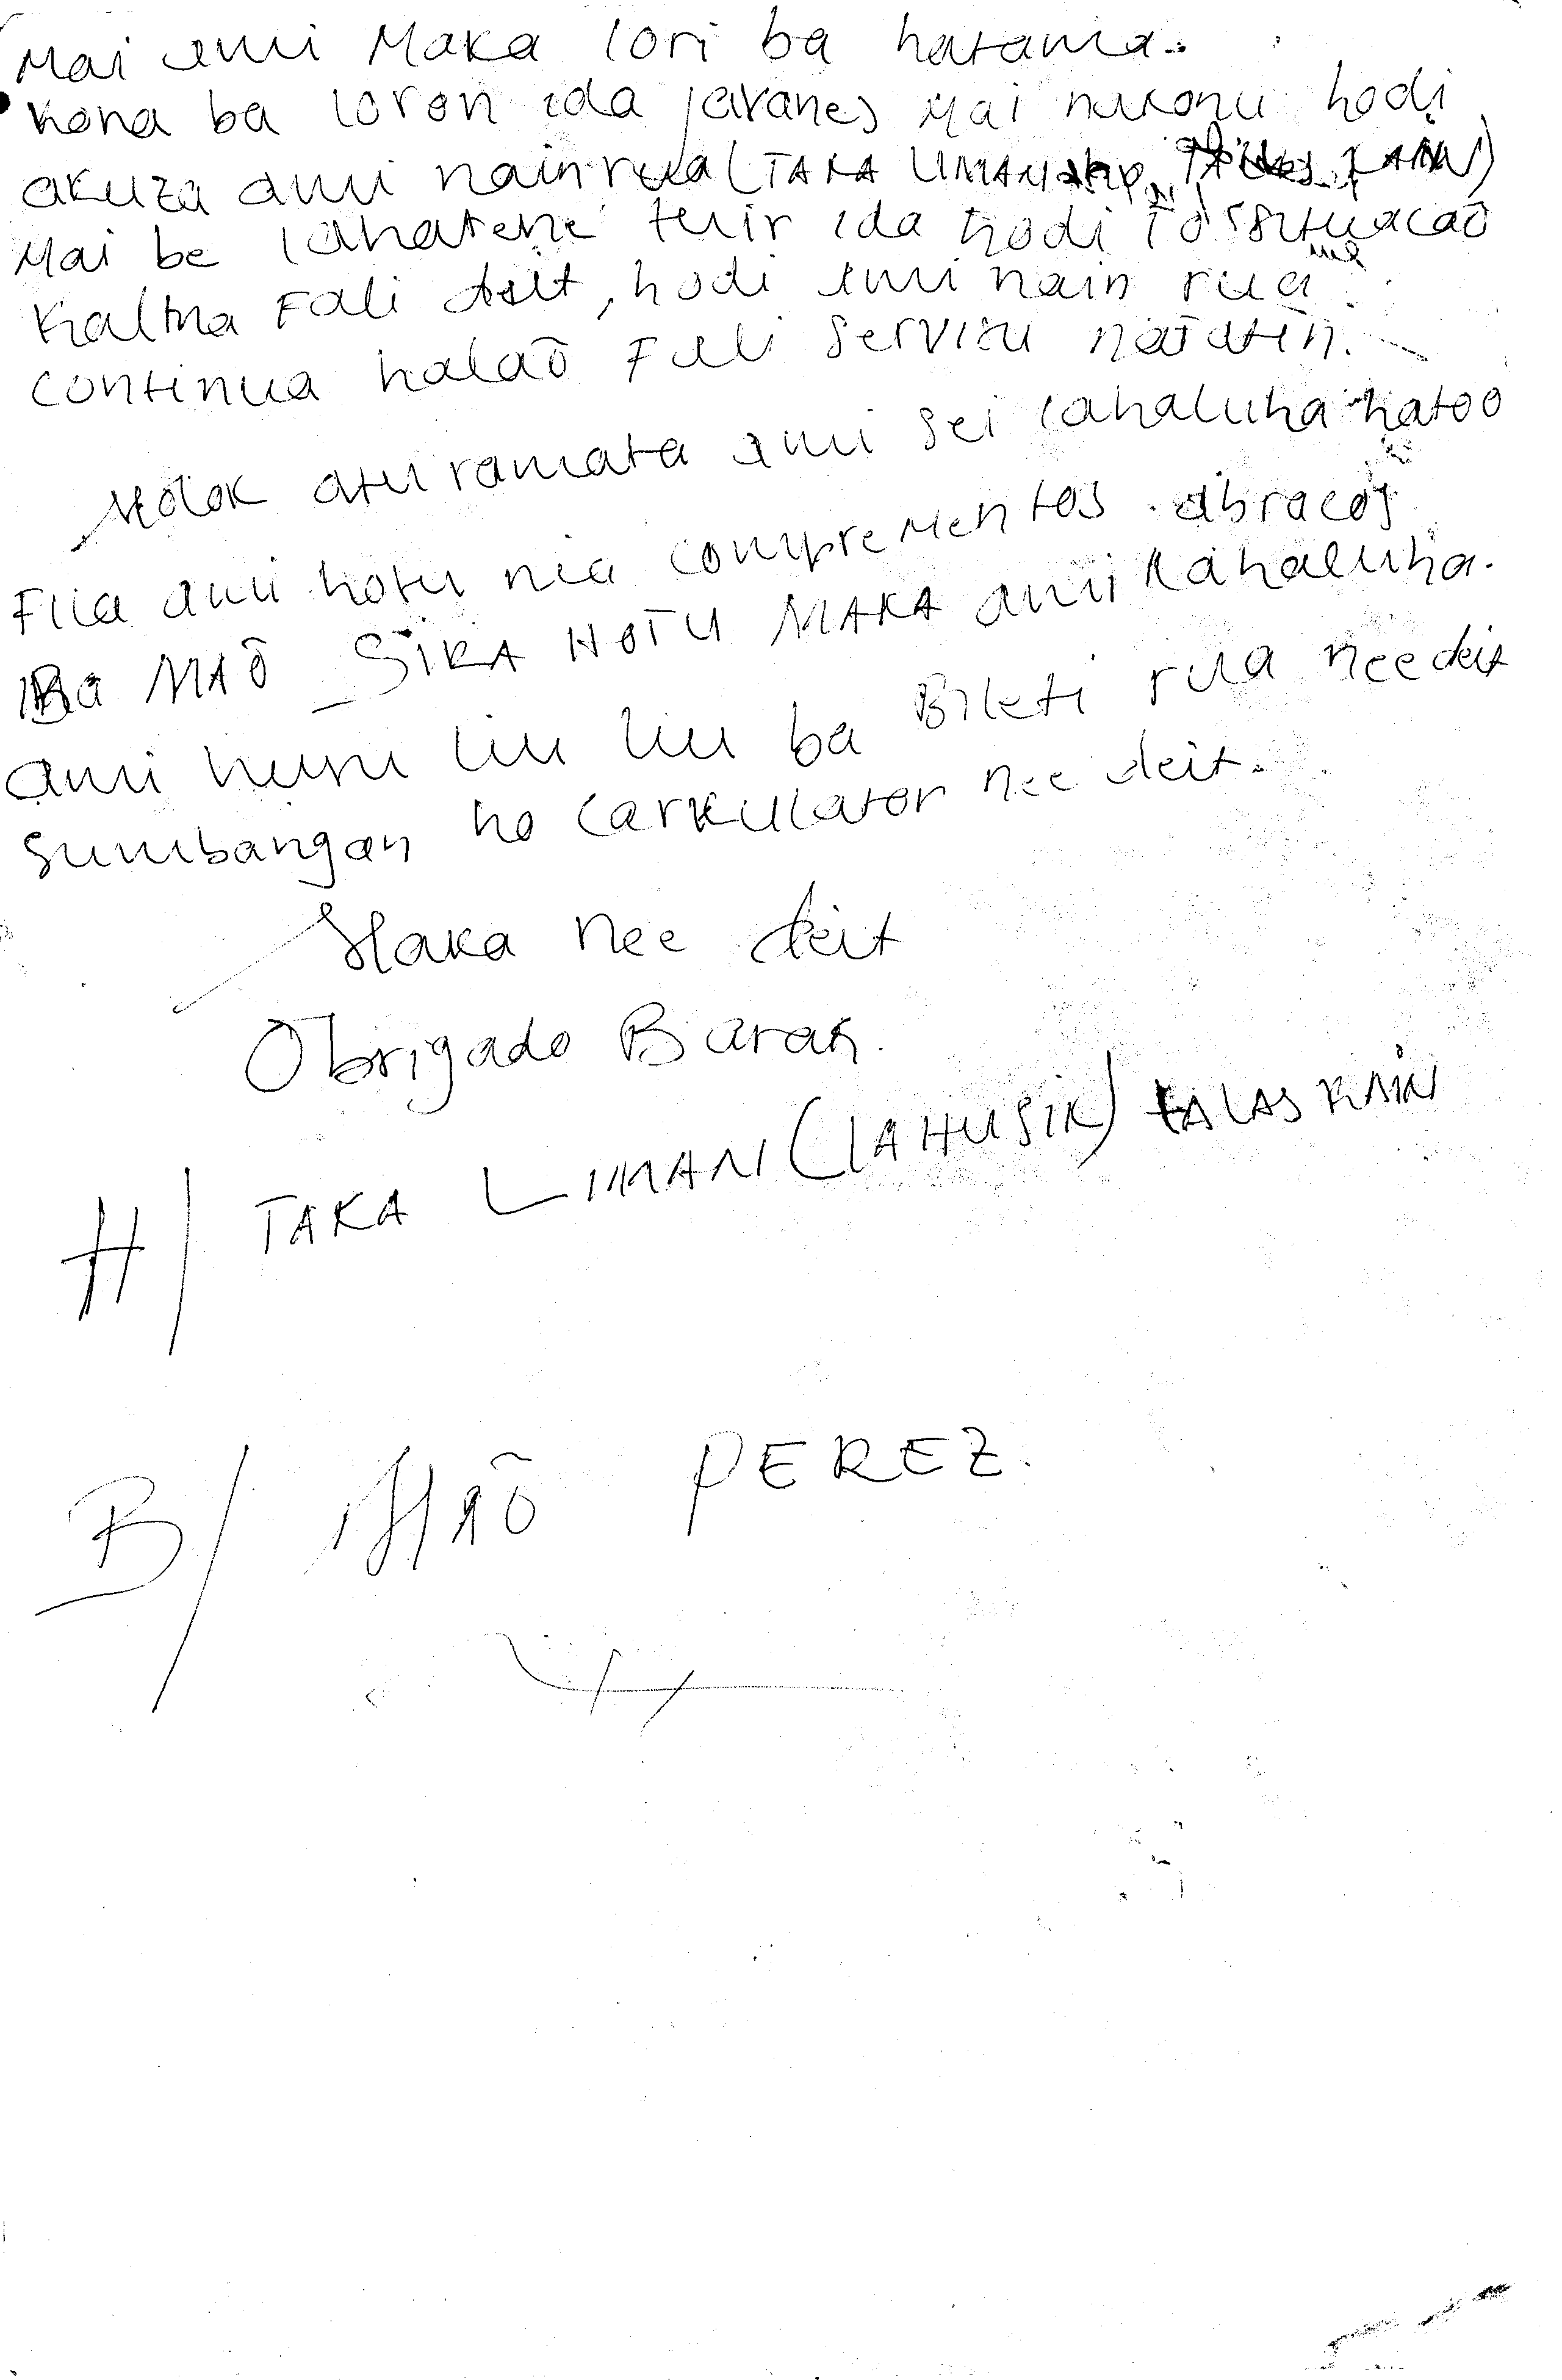 Mai ami Maka lori ba hatama.
Kona ba loron ida javanes Mai nukonu hodi
akuza ami nain rua (TAKA LIMANI ho TALAS KAIN)
Mai be lahatene tuir ida hodi
Kalma Fali deit, hodi ami nain rua
continua halaō Fali servisu nafatin.
Molok atu ramata ami sei lahaluha hatoo
Filia ami hotu nia comprementos abracos
Ba MAŌ SIRA HOTU MAKA ami lahaluha.
ami husu liu liu ba Bileti rua nee deit
sumbangan ho carkulator nee deit.
Maka nee deit
Obrigado Barak.
H/ TAKA LIMANI (LAHUSIK) TALAS KAIN
B/ MAŌ PEREZ.